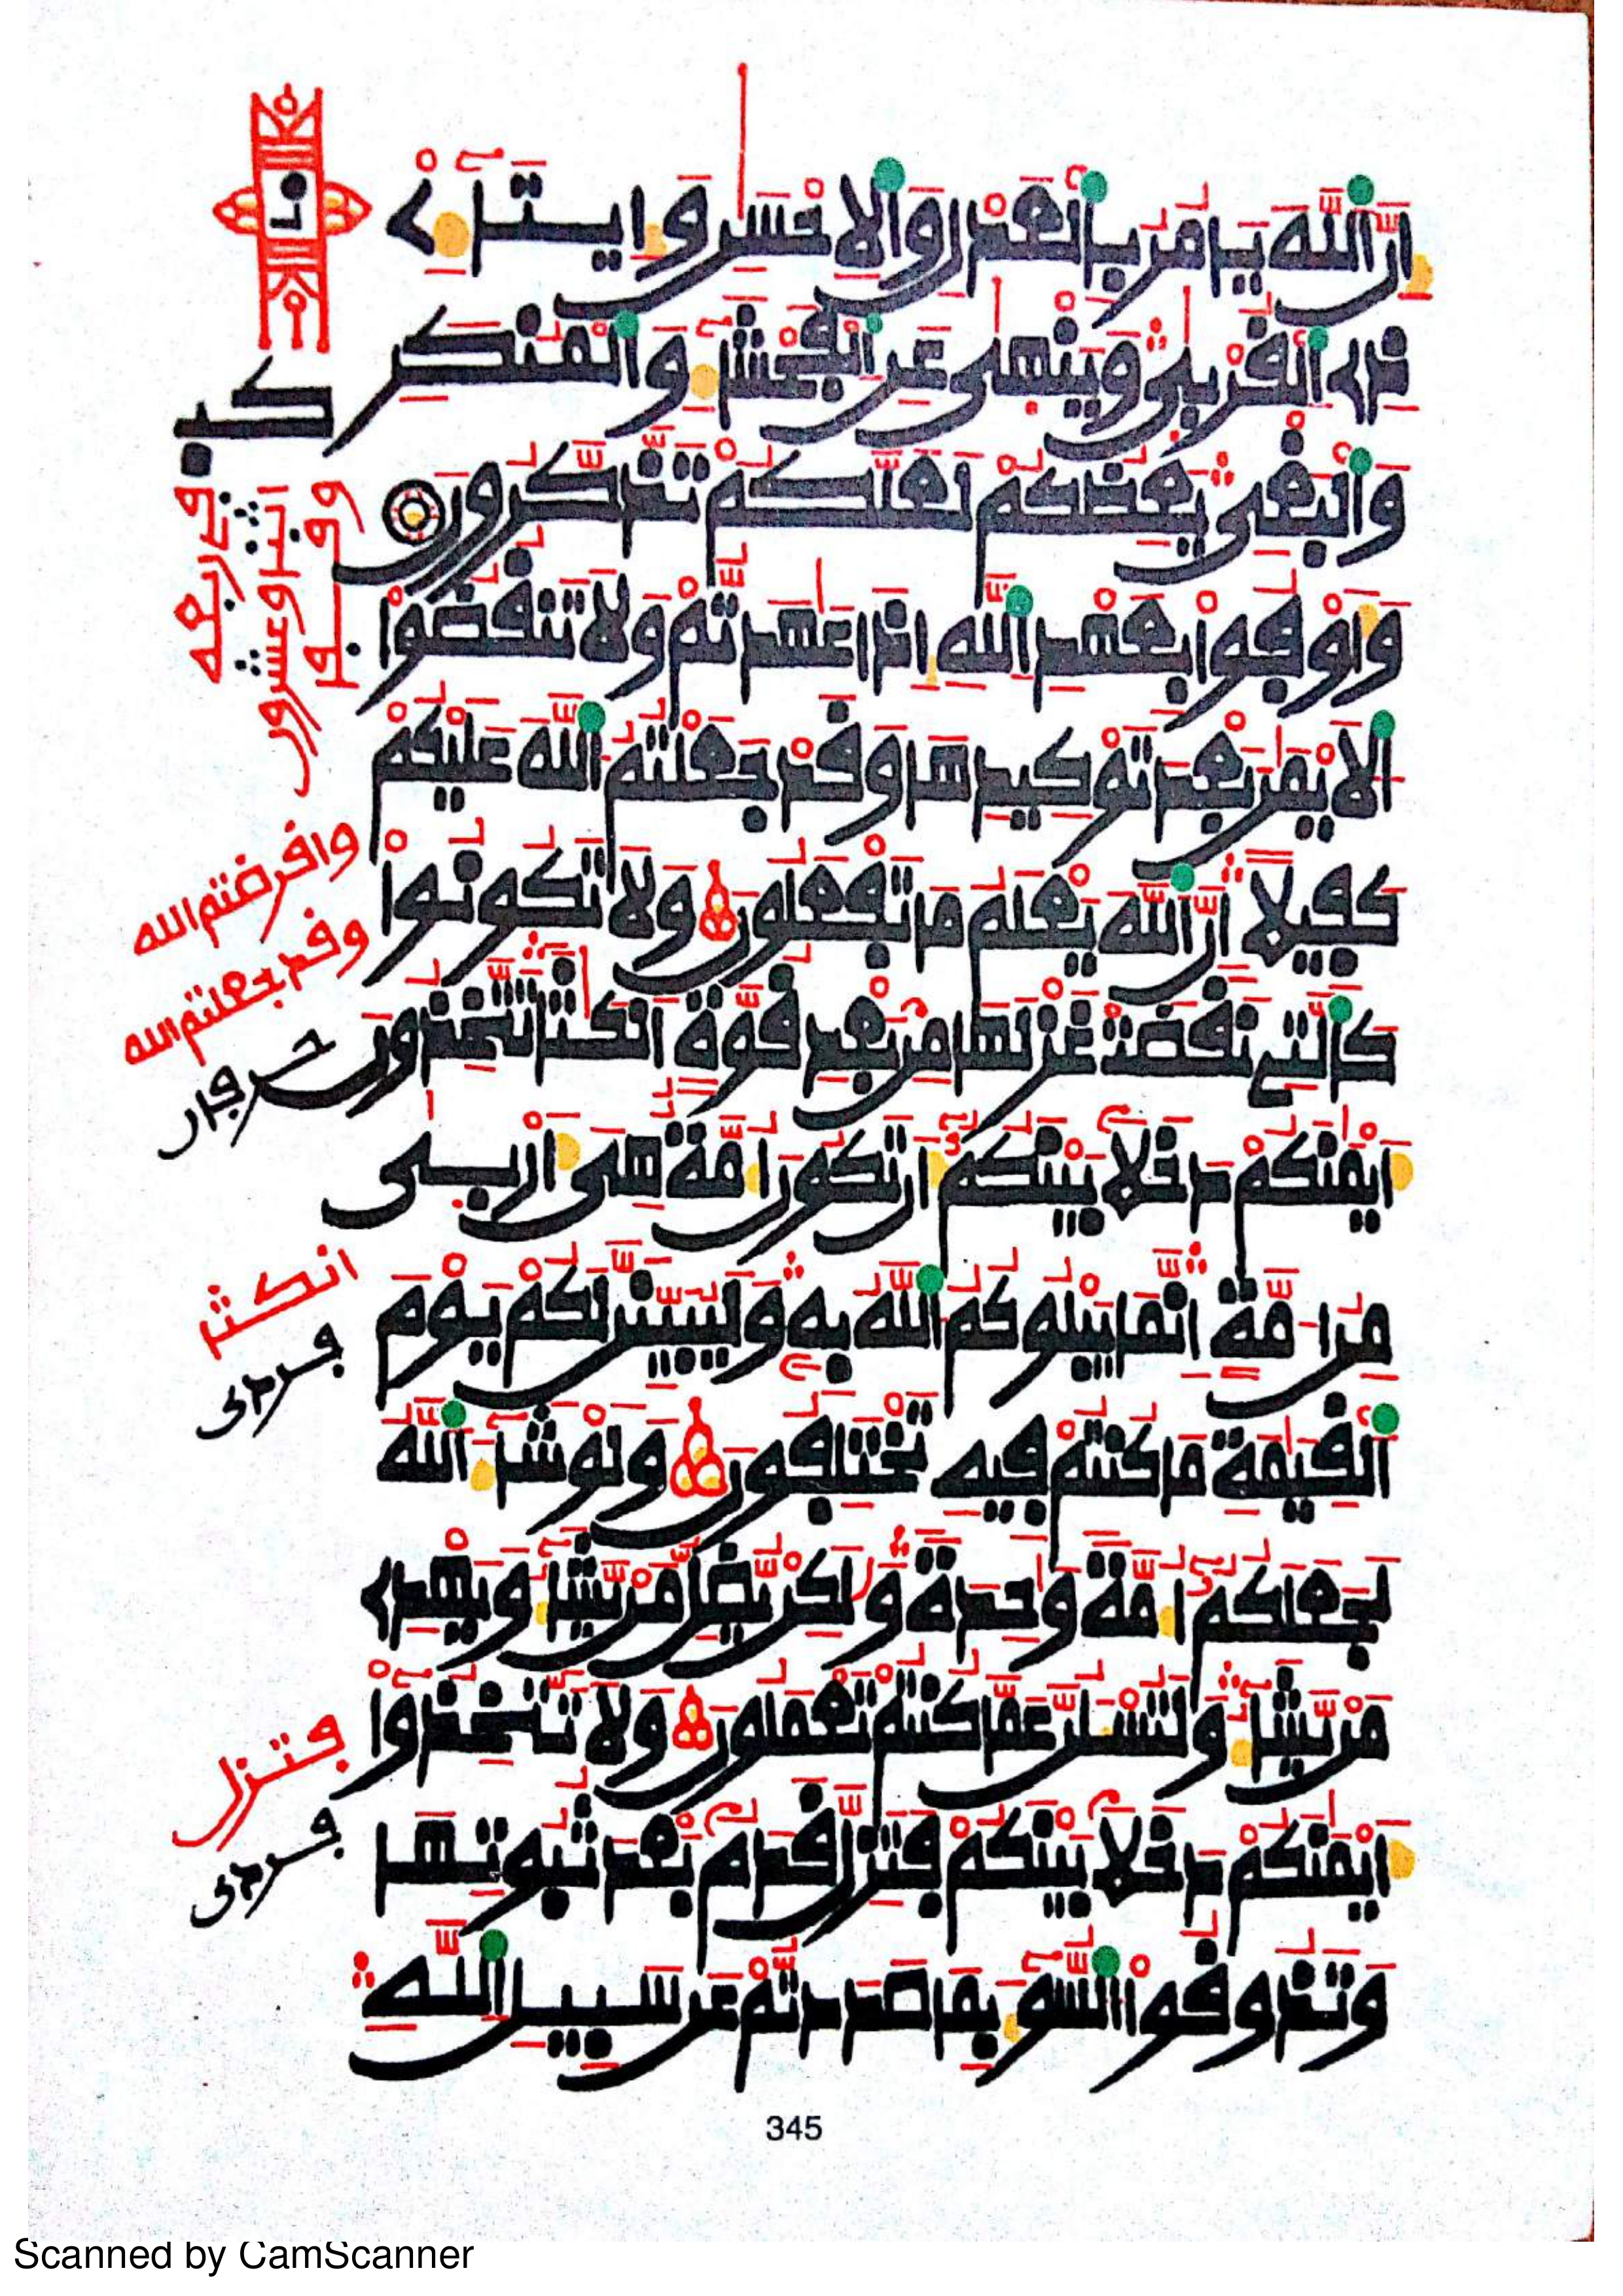 إِنَّ ٱللَّهَ يَامُرُ بِٱلْعَدْلِ وَٱلِاحْسَٰنِ وَإِيتَآءِ
ذِي ٱلْقُرْبَىٰ وَيَنْهَىٰ عَنِ ٱلْفَحْشَآءِ وَٱلْمُنكَرِ
وَٱلْبَغْيِ يَعِظُكُمْ لَعَلَّكُمْ تَذَّكَّرُونَ
وَأَوْفُوا۟ بِعَهْدِ ٱللَّهِ إِذَا عَٰهَدتُّمْ وَلَا تَنقُضُوا۟
ٱلَايْمَٰنَ بَعْدَ تَوْكِيدِهَا وَقَدْ جَعَلْتُمُ ٱللَّهَ عَلَيْكُمْ
كَفِيلًا إِنَّ ٱللَّهَ يَعْلَمُ مَا تَفْعَلُونَ وَلَا تَكُونُوا۟
كَٱلَّتِي نَقَضَتْ غَزْلَهَا مِنۢ بَعْدِ قُوَّةٍ أَنكَٰثًا تَتَّخِذُونَ
أَيْمَٰنَكُمْ دَخَلًۢا بَيْنَكُمُۥٓ أَن تَكُونَ أُمَّةٌ هِيَ أَرْبَىٰ
مِنُ امَّةٍ اِنَّمَا يَبْلُوكُمُ ٱللَّهُ بِهِۦ وَلَيُبَيِّنَنَّ لَكُمْ يَوْمَ
ٱلْقِيَٰمَةِ مَا كُنتُمْ فِيهِ تَخْتَلِفُونَ وَلَوْ شَآءَ ٱللَّهُ
لَجَعَلَكُمُۥٓ أُمَّةً وَٰحِدَةً وَلَٰكِن يُضِلُّ مَن يَّشَآءُ وَيَهْدِي
مَن يَّشَآءُ وَلَتُسْـَٔلُنَّ عَمَّا كُنتُمْ تَعْمَلُونَ وَلَا تَتَّخِذُوٓا۟
أَيْمَٰنَكُمْ دَخَلًۢا بَيْنَكُمْ فَتَزِلَّ قَدَمٌۢ بَعْدَ ثُبُوتِهَا
وَتَذُوقُوا۟ ٱلسُّوٓءَ بِمَا صَدَدتُّمْ عَن سَبِيلِ ٱللَّهِ
وافرضتم الله
وقد جعلتم الله
حرفان
انكثا
فردي
فتزل
فردي
345
Scanned by CamScanner